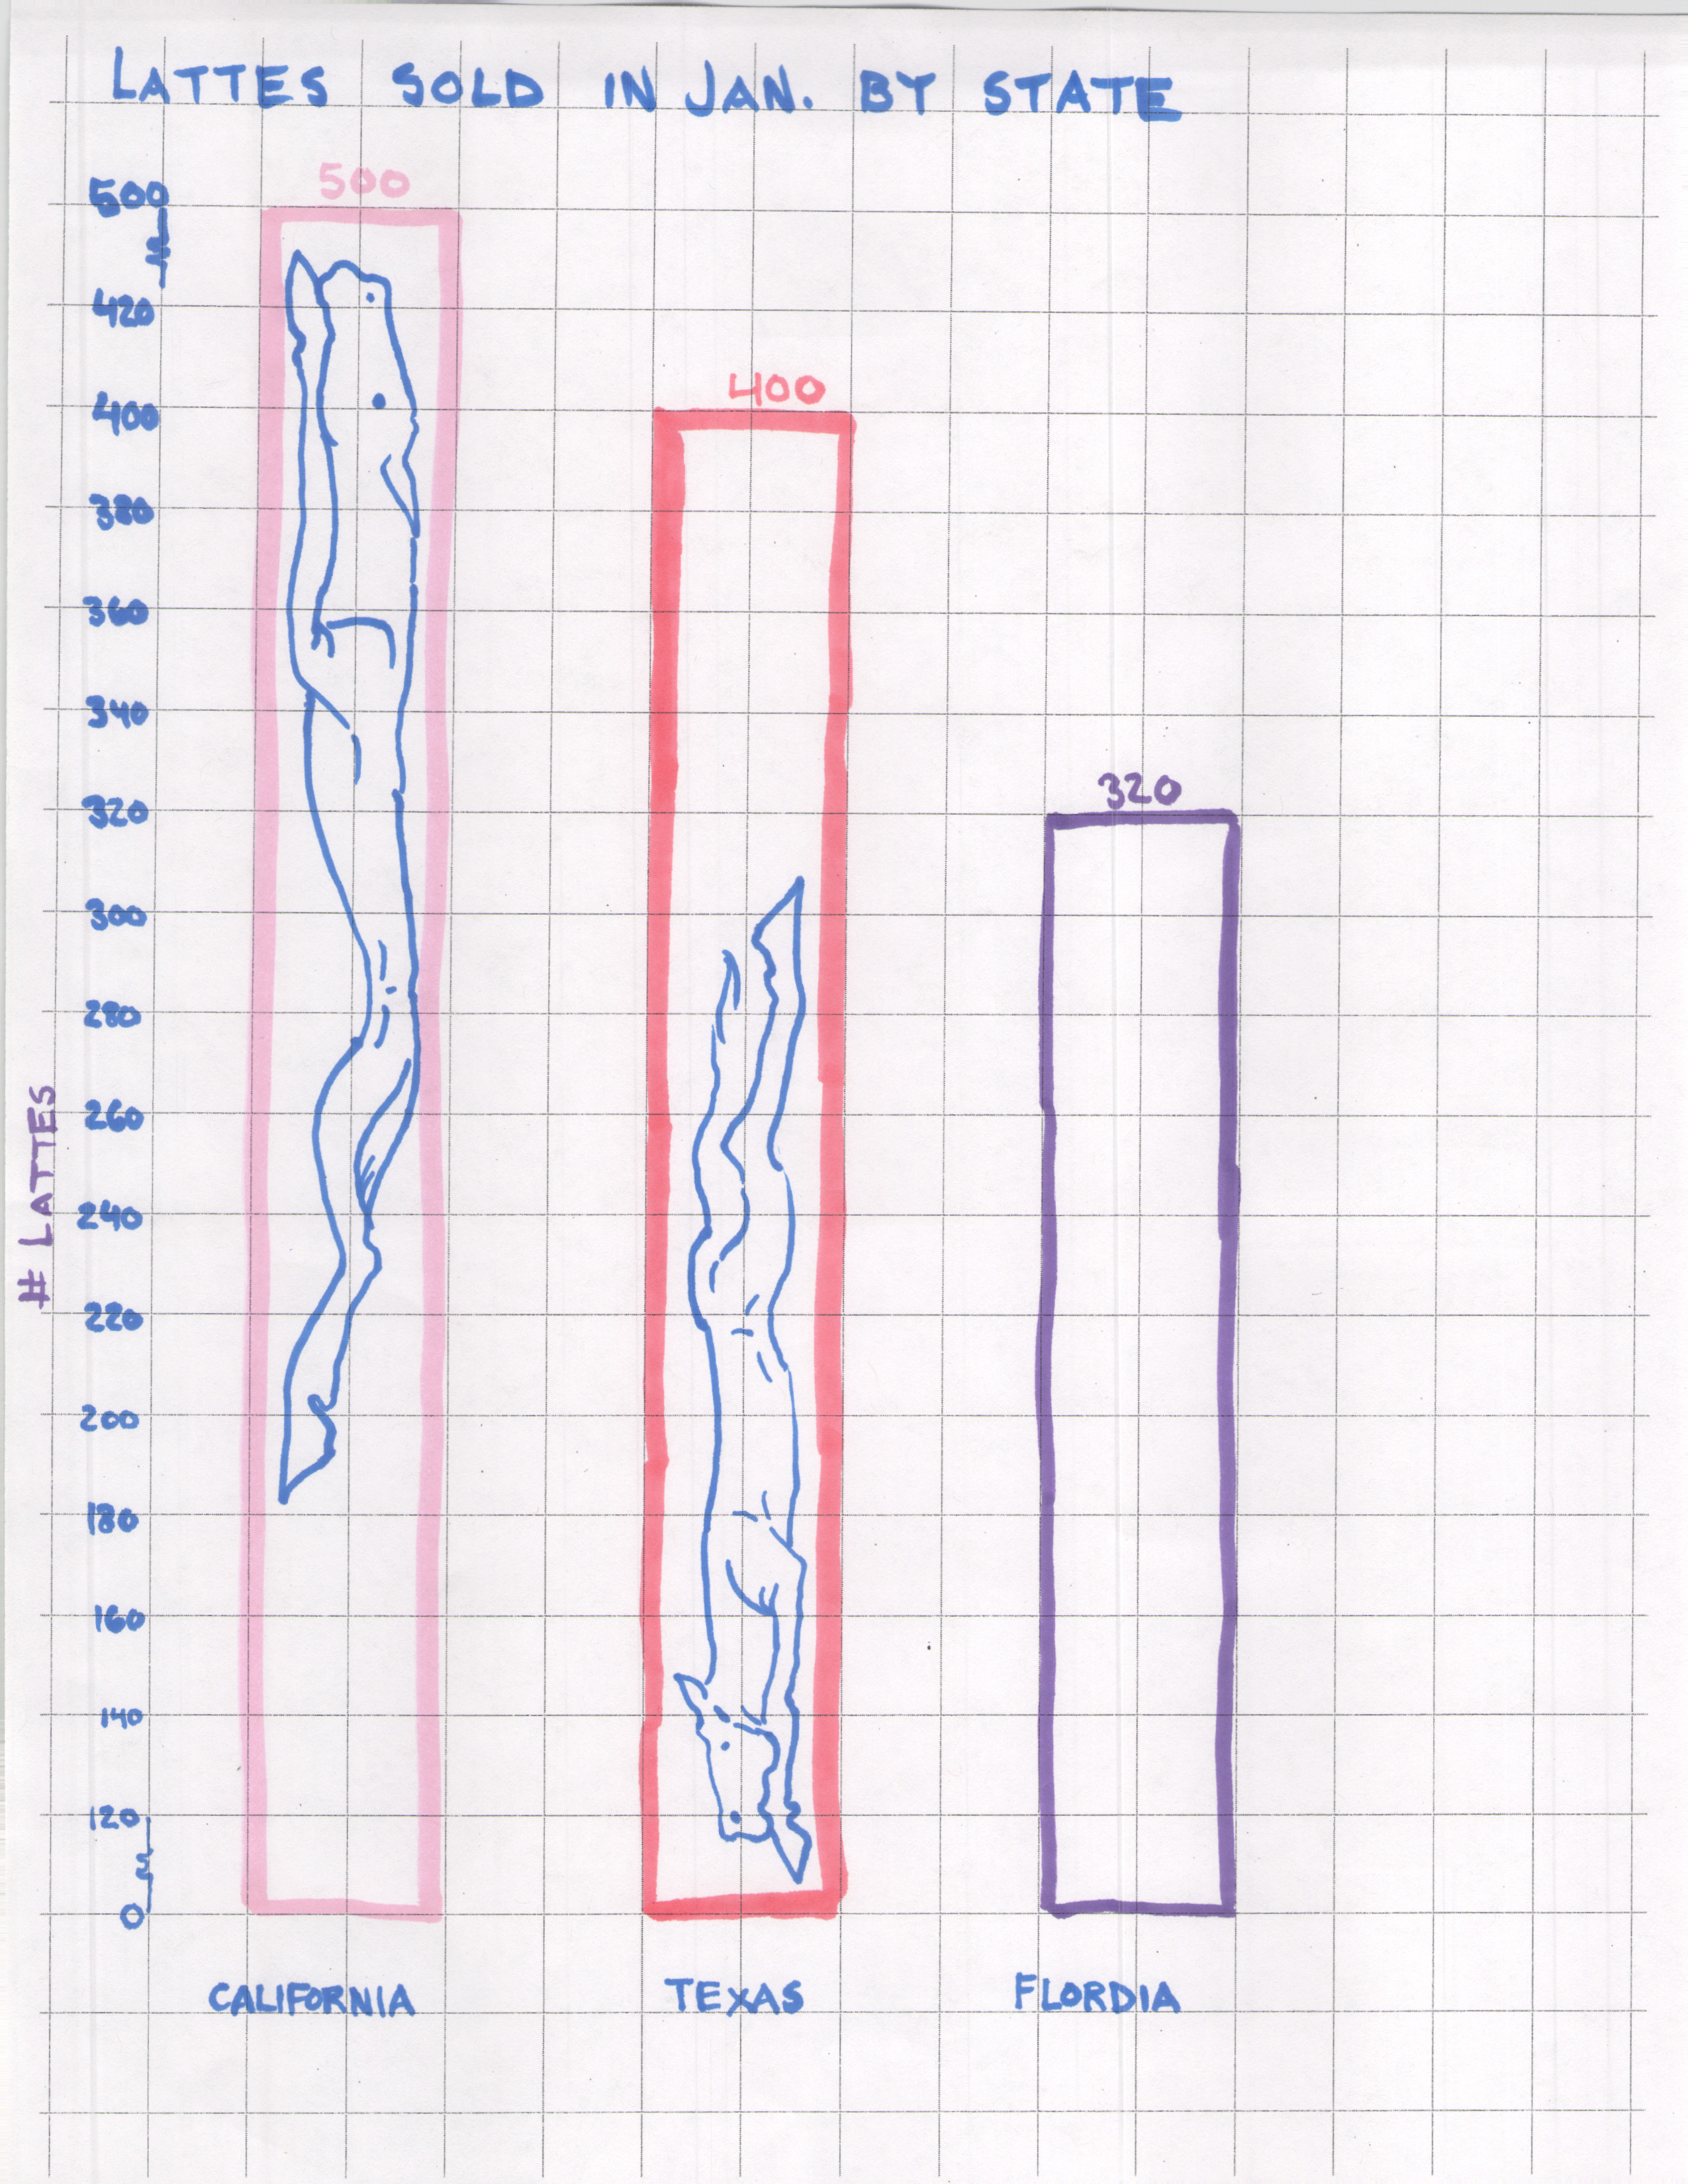 LATTES SOLD IN JAN. BY STATE
500
500
420
400
400
380
360
340
320
320
300
280
260
240
220
200
180
160
140
120
0
# LATTES
CALIFORNIA TEXAS FLORDIA